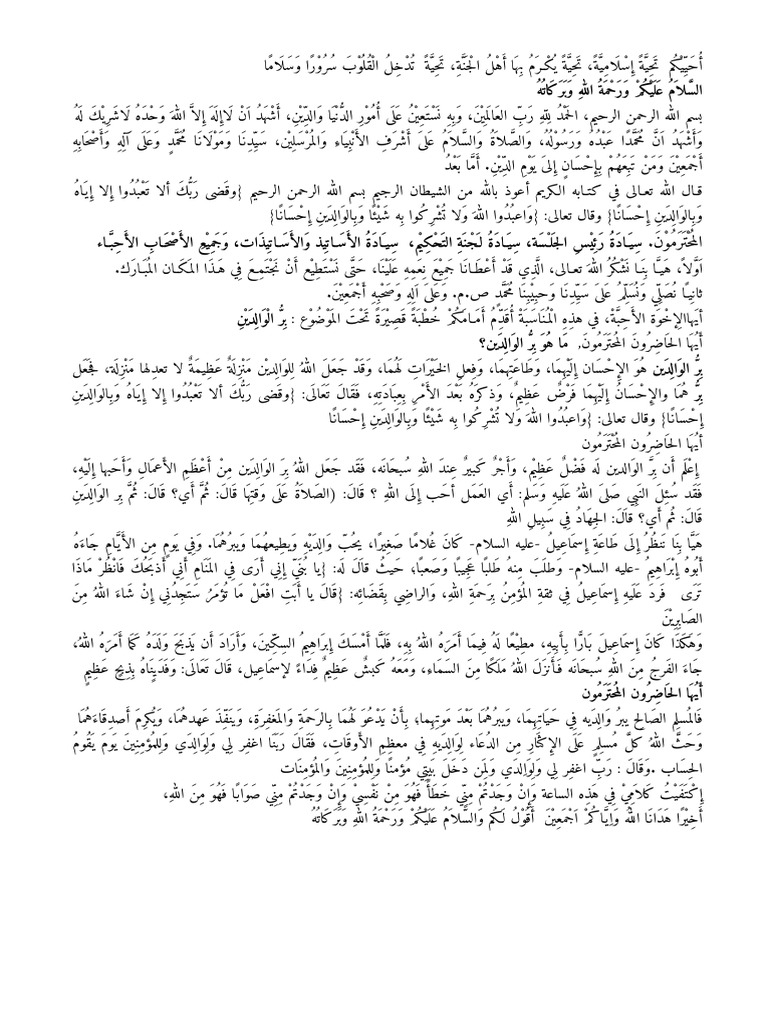 أُحَيِّيْكُم تَحِيَّةً إِسْلَامِيَّةً، تَحِيَّةً يُكْرَمُ بِهَا أَهْلُ الْجَنَّةِ، تَحِيَّةً تُدْخِلُ الْقُلُوْبَ سُرُوْرًا وَسَلَامًا
السَّلاَمُ عَلَيْكُمْ وَرَحْمَةُ اللهِ وَبَرَكَاتُهُ
بسم الله الرحمن الرحيم، الحَمْدُ لِلّهِ رَبِّ العَالَمِيْنَ، وَبِهِ نَسْتَعِيْنُ عَلَى أُمُوْرِ الدُّنْيَا وَالدِّيْنِ، أَشْهَدُ اَنْ لاَإِلَهَ إِلاَّ اللهَ وَحْدَهُ لاَشَرِيْكَ لَهُ
وَأَشْهَدُ اَنَّ مُحَمَّدًا عَبْدُهُ وَرَسُوْلُهُ، وَالصَّلاَةُ وَالسَّلاَمُ عَلىَ أَشْرَفِ الأَنْبِيَاءِ وَالمُرْسَلِيْنَ، سَيِّدِنَا وَمَوْلَانَا مُحَمَّدٍ وَعَلَى آلِهِ وَأَصْحَابِهِ
أَجْمَعِيْنَ وَمَنْ تَبِعَهُمْ بِإِحْسَانٍ إِلىَ يَوْمِ الدِّيْنِ. أَمَّا بَعْدُ
قال الله تعالى في كتابه الكريم أعوذ بالله من الشيطان الرجيم بسم الله الرحمن الرحيم {وقَضى رَبُّكَ ألا تَعْبُدُوا إلا إيَاهُ
وَبِالوَالِدَينِ إِحْسَانًا} وقال تعالى: {وَاعبُدُوا اللهَ وَلا تُشْرِكُوا بِه شَيْئًا وَبِالوَالِدَينِ إِحْسَانًا}
المُحْتَرَمُوْنَ. سِيَادَةُ رَئِيْسِ الجَلْسَةِ، سِيَادَةُ لَجْنَةِ التَحْكِيْمِ، سِيَادَةُ الأَسَاتِيذ وَالأَسَاتِيذَات، وَجَمِيْعِ الأَصْحَابِ الأَحِبَّاء
اَوَّلاً، هَيَّا بِنا نَشْكُرُ اللهَ تعالى، الَّذِي قَدْ أَعْطَانَا جَمِيْعَ نِعَمِهِ عَلَيْنَا، حَتَّى نَسْتَطِيْعَ أَنْ نَجْتَمِعَ فِي هَذَا المَكَانِ المُبَارَك.
ثانِيًا نُصَلِّي وَنُسَلِّمُ عَلىَ سَيِّدِنَا وَحبِيْبِنَا مُحَمَّدٍ ص.م. وَعَلىَ اَلِهِ وَصَحْبِهِ أَجْمَعِيْنَ.
أيّهاالإخْوَةُ الأَحِبَّة، في هذِهِ المُنَاسَبَةْ أُقَدِّمُ أَمَامَكُمْ خُطْبَةً قَصِيْرَةً تَحْتَ المَوْضُوْعِ : بِرُّ الْوَالِدَيْنِ
أَيُّهَا الحَاضِرُونَ المُحْتَرَمُونَ, مَا هُوَ بِرُّ الوَالِدَين؟
بِرُّ الوالِدَينِ هُوَ الإِحْسَان إِلَيْهِمَا، وَطَاعَتِهِمَا، وَفِعلِ الخَيْرَاتِ لَهُمَا، وَقَدْ جَعَلَ اللهُ لِلوَالِدَيْن مَنْزِلَةً عَظِيمَةً لا تعدِلها مَنْزِلَة، فَجَعَلَ
بِرُّ هُمَا والإِحْسَانُ إِلَيْهِمَا فَرْضٌ عَظِيمٌ، وَذكرَهُ بَعْدَ الأَمْرِ بِعِبَادَتِهِ، فَقَالَ تَعَالَى: {وقضى رَبُّكَ ألا تَعْبُدُوا إلا إيَاهُ وَبِالوَالِدَينِ
إِحْسَانًا} وقال تعالى: {وَاعبُدُوا اللهَ وَلا تُشْرِكُوا بِه شَيْئًا وَبِالوَالِدَينِ إِحْسَانًا
أيُهَا الحَاضِرُون المُحْتَرَمُون
إعْلَم أن بِرَّ الوَالدين له فَضْلٌ عَظِيْم، وَأَجْرٌ كَبيرٌ عِندَ اللهِ سُبحَانَه، فَقَد جَعَلَ اللهُ بِرَ الوَالِدَين مِنْ أَعْظَمِ الأَعمَالِ وَأحَبها إِلَيْهِ،
فَقَد سُئِلَ النَبِي صَلى اللهُ عَلَيهِ وسَلم: أي العَمَل أحَب إلى اللهِ ؟ قَالَ: (الصَلاةُ عَلَى وَقتِهَا قَالَ: ثُمَّ أَي؟ قَالَ: ثُمَّ بِر الوَالِدَينِ
قَالَ: ثُم أي؟ قَالَ: الجِهَادُ فِي سَبِيلِ اللهِ
هَيَّا بِنَا نَنظُرُ إِلَى طَاعَةِ إِسمَاعِيلُ -عليه السلام- كَانَ غُلامًا صَغِيرًا، يحُبّ وَالِدَيْهِ وَيطِيعهُمَا وَيبرُهُمَا. وَفِي يَومٍ مِن الأَيَّامِ جَاءَهُ
أَبُوهُ إِبْرَاهِيمُ -عليه السلام- وَطَلَبَ مِنهُ طَلَبًا عَجِيبًا وَصَعبًا؛ حَيثُ قَالَ لَهُ: {يا بُنَيَّ إِنِي أَرَى فِي المَنَامِ أَنِي أَذبَحُكَ فَانْظُرْ مَاذَا
تَرَى فَرد عَلَيهِ إِسمَاعِيلُ فِي ثقةِ المُؤمِنُ بِرَحمَةِ اللهِ، وَالرَاضِي بِقَضَائِه: {قَالَ يا أَبَتِ افْعَلْ مَا تؤمَرُ سَتَجِدُنِي إنْ شَاءَ اللهُ مِنَ
الصَابِرِيْنَ
وَهَكَذَا كَانَ إِسمَاعِيلُ بَارًا بِأَبِيهِ، مطِيعًا لَه فِيمَا أمَرَهُ اللهُ بِهِ، فَلَمَّا أَمْسَكَ إِبرَاهِيمُ السِكِينَ، وَأَرَادَ أن يَذبَحَ وَلَدَهُ كَمَا أمَرَهُ اللهُ،
جَاءَ الفَرجُ مِنَ اللهِ سُبحَانَه فَأَنزَلَ اللهُ مَلَكًا مِنَ السَمَاءِ، وَمَعَهُ كَبشٌ عَظِيمٌ فِدَاءً لإسمَاعِيل، قَالَ تَعَالَى: وَفَدَينَاهُ بِذِبحٍ عَظِيمٍ
أَيُهَا الحَاضِرُون المُحْتَرَمُون
فَالمُسلِم الصَالِح يبرُ وَالِدَيه فِي حَيَاتِهِمَا، وَيبرُهُمَا بَعْدَ مَوتِهِما؛ بِأَنْ يَدْعُوَ لَهُمَا بِالرَحمَةِ وَالمَغفِرَةِ، وَيَنفِّذَ عَهدهُمَا، وَيكْرِمَ أَصدِقَاءَهُمَا
وَحَثَّ اللهُ كلَّ مسلِمٍ عَلَى الإِكثَارِ مِن الدُعَاء لِوَالِدَيهِ فِي معظِمِ الأَوقَاتِ، فَقَالَ رَبنَا اغفِر لِي وَلِوَالدَي وَلِلمُؤمِنِينَ يَومَ يَقُومُ
الحِسَاب .وَقَالَ : رَبِّ اغفِر لِي وَلِوَالِدَي وَلِمَن دَخَلَ بَيتِي مُؤمنًا وَلِلمُؤمِنِينَ وَالمُؤمِنَات
إِكْتَفَيْتُ كَلَامِيْ فِي هَذِه الساعة وَإِنْ وَجَدْتُمْ مِنِّي خَطَأً فَهُوَ مِنْ نَفْسِيْ وَإِنْ وَجَدْتُمْ مِنِّي صَوَابًا فَهُوَ مِنَ اللهِ،
أَخِيْرًا هَدَانَا اللهُ وَإِيَّاكُمْ اَجْمَعِيْنَ أَقُوْلُ لَكُم وَالسَّلاَمُ عَلَيْكُمْ وَرَحْمَةُ اللهِ وَبَرَكَاتُهُ